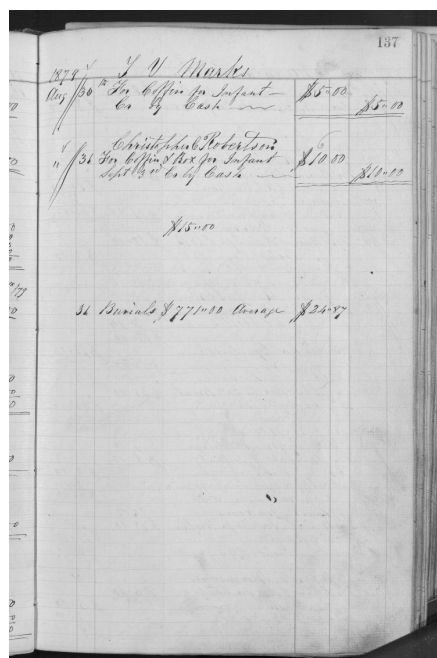 137
1878 T V Marks
Aug 30th For Coffin for Infant $5"00
Cr by Cash $5"00
Christopher C Robertson
" 31 For Coffin & Box for Infant $10 00
Sept 3rd Cr by Cash $10"00
$15"00
31 Burials $771"00 Average $24"87